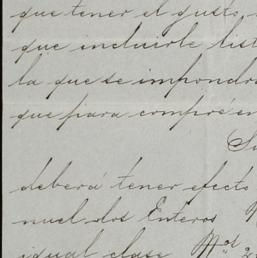 que tener el gusto
que incluirle list
la que se impondr
que para compré en
Su
deberá tener efecto
nuel dos Enteros
igual clase Md